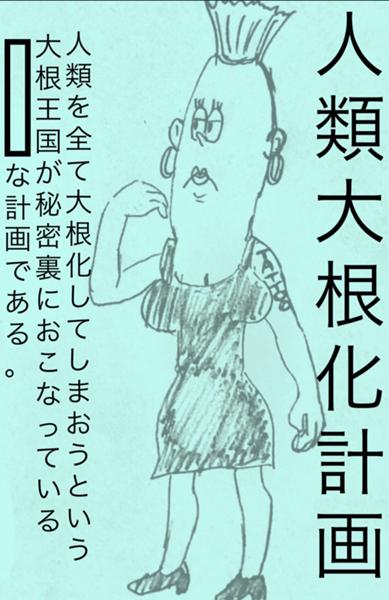 人類大根化計画
人類を全て大根化してしまおうという
大根王国が秘密裏におこなっている
な計画である。